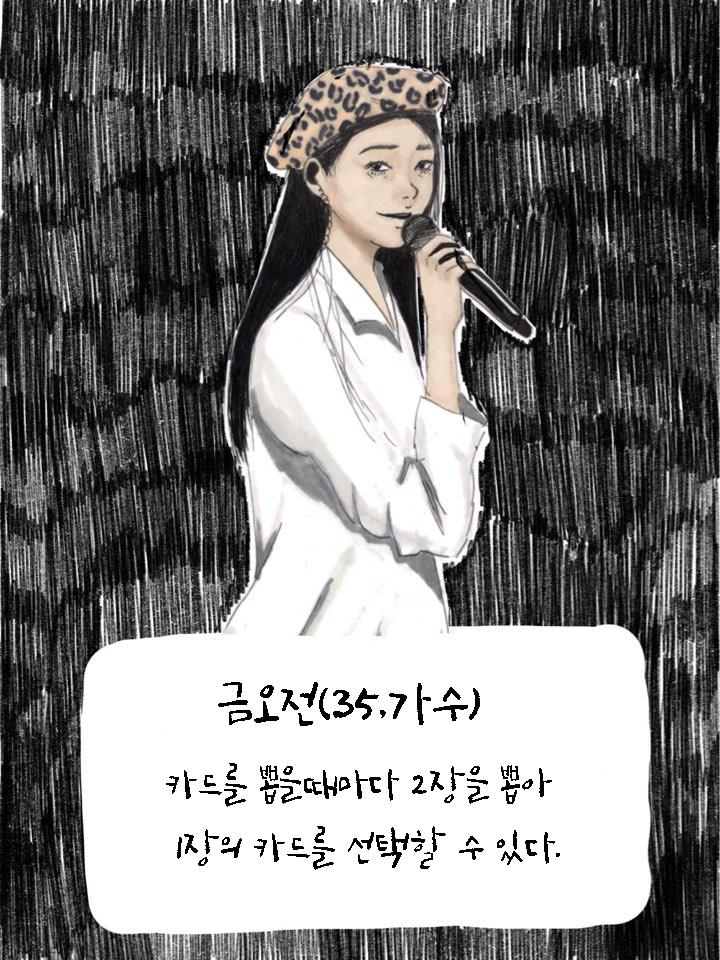 금오전(35.가수)
카드를 뽑을때마다 2장을 뽑아
1장의 카드를 선택할 수 있다.